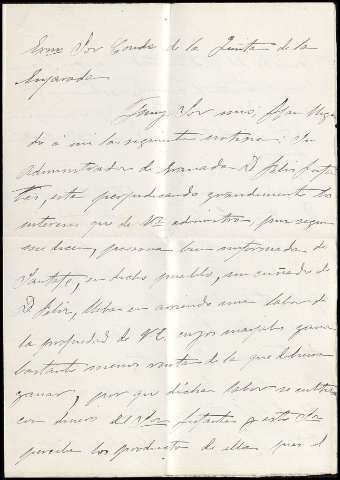 Exmo Sor Conde de la Quinta de la
Enjarada
Muy Sor mio, llegan
do á mi la siguiente noticia: Su
Administrador de Granada D. Felix
esta perjudicando grandemente los
intereses que de VE administra, pues segun
me dicen, persona bien informada de
Santafe, en dicho pueblo, un cuñado de
D. Felix, lleban en arriendo una labor de
la propiedad de VE, cuyos marjales ganan
bastante menos renta de la que debieran
ganar, por que dichas labor se cultiva
con dinero del Sor y este Sor
percibe los productos de ella, pues el